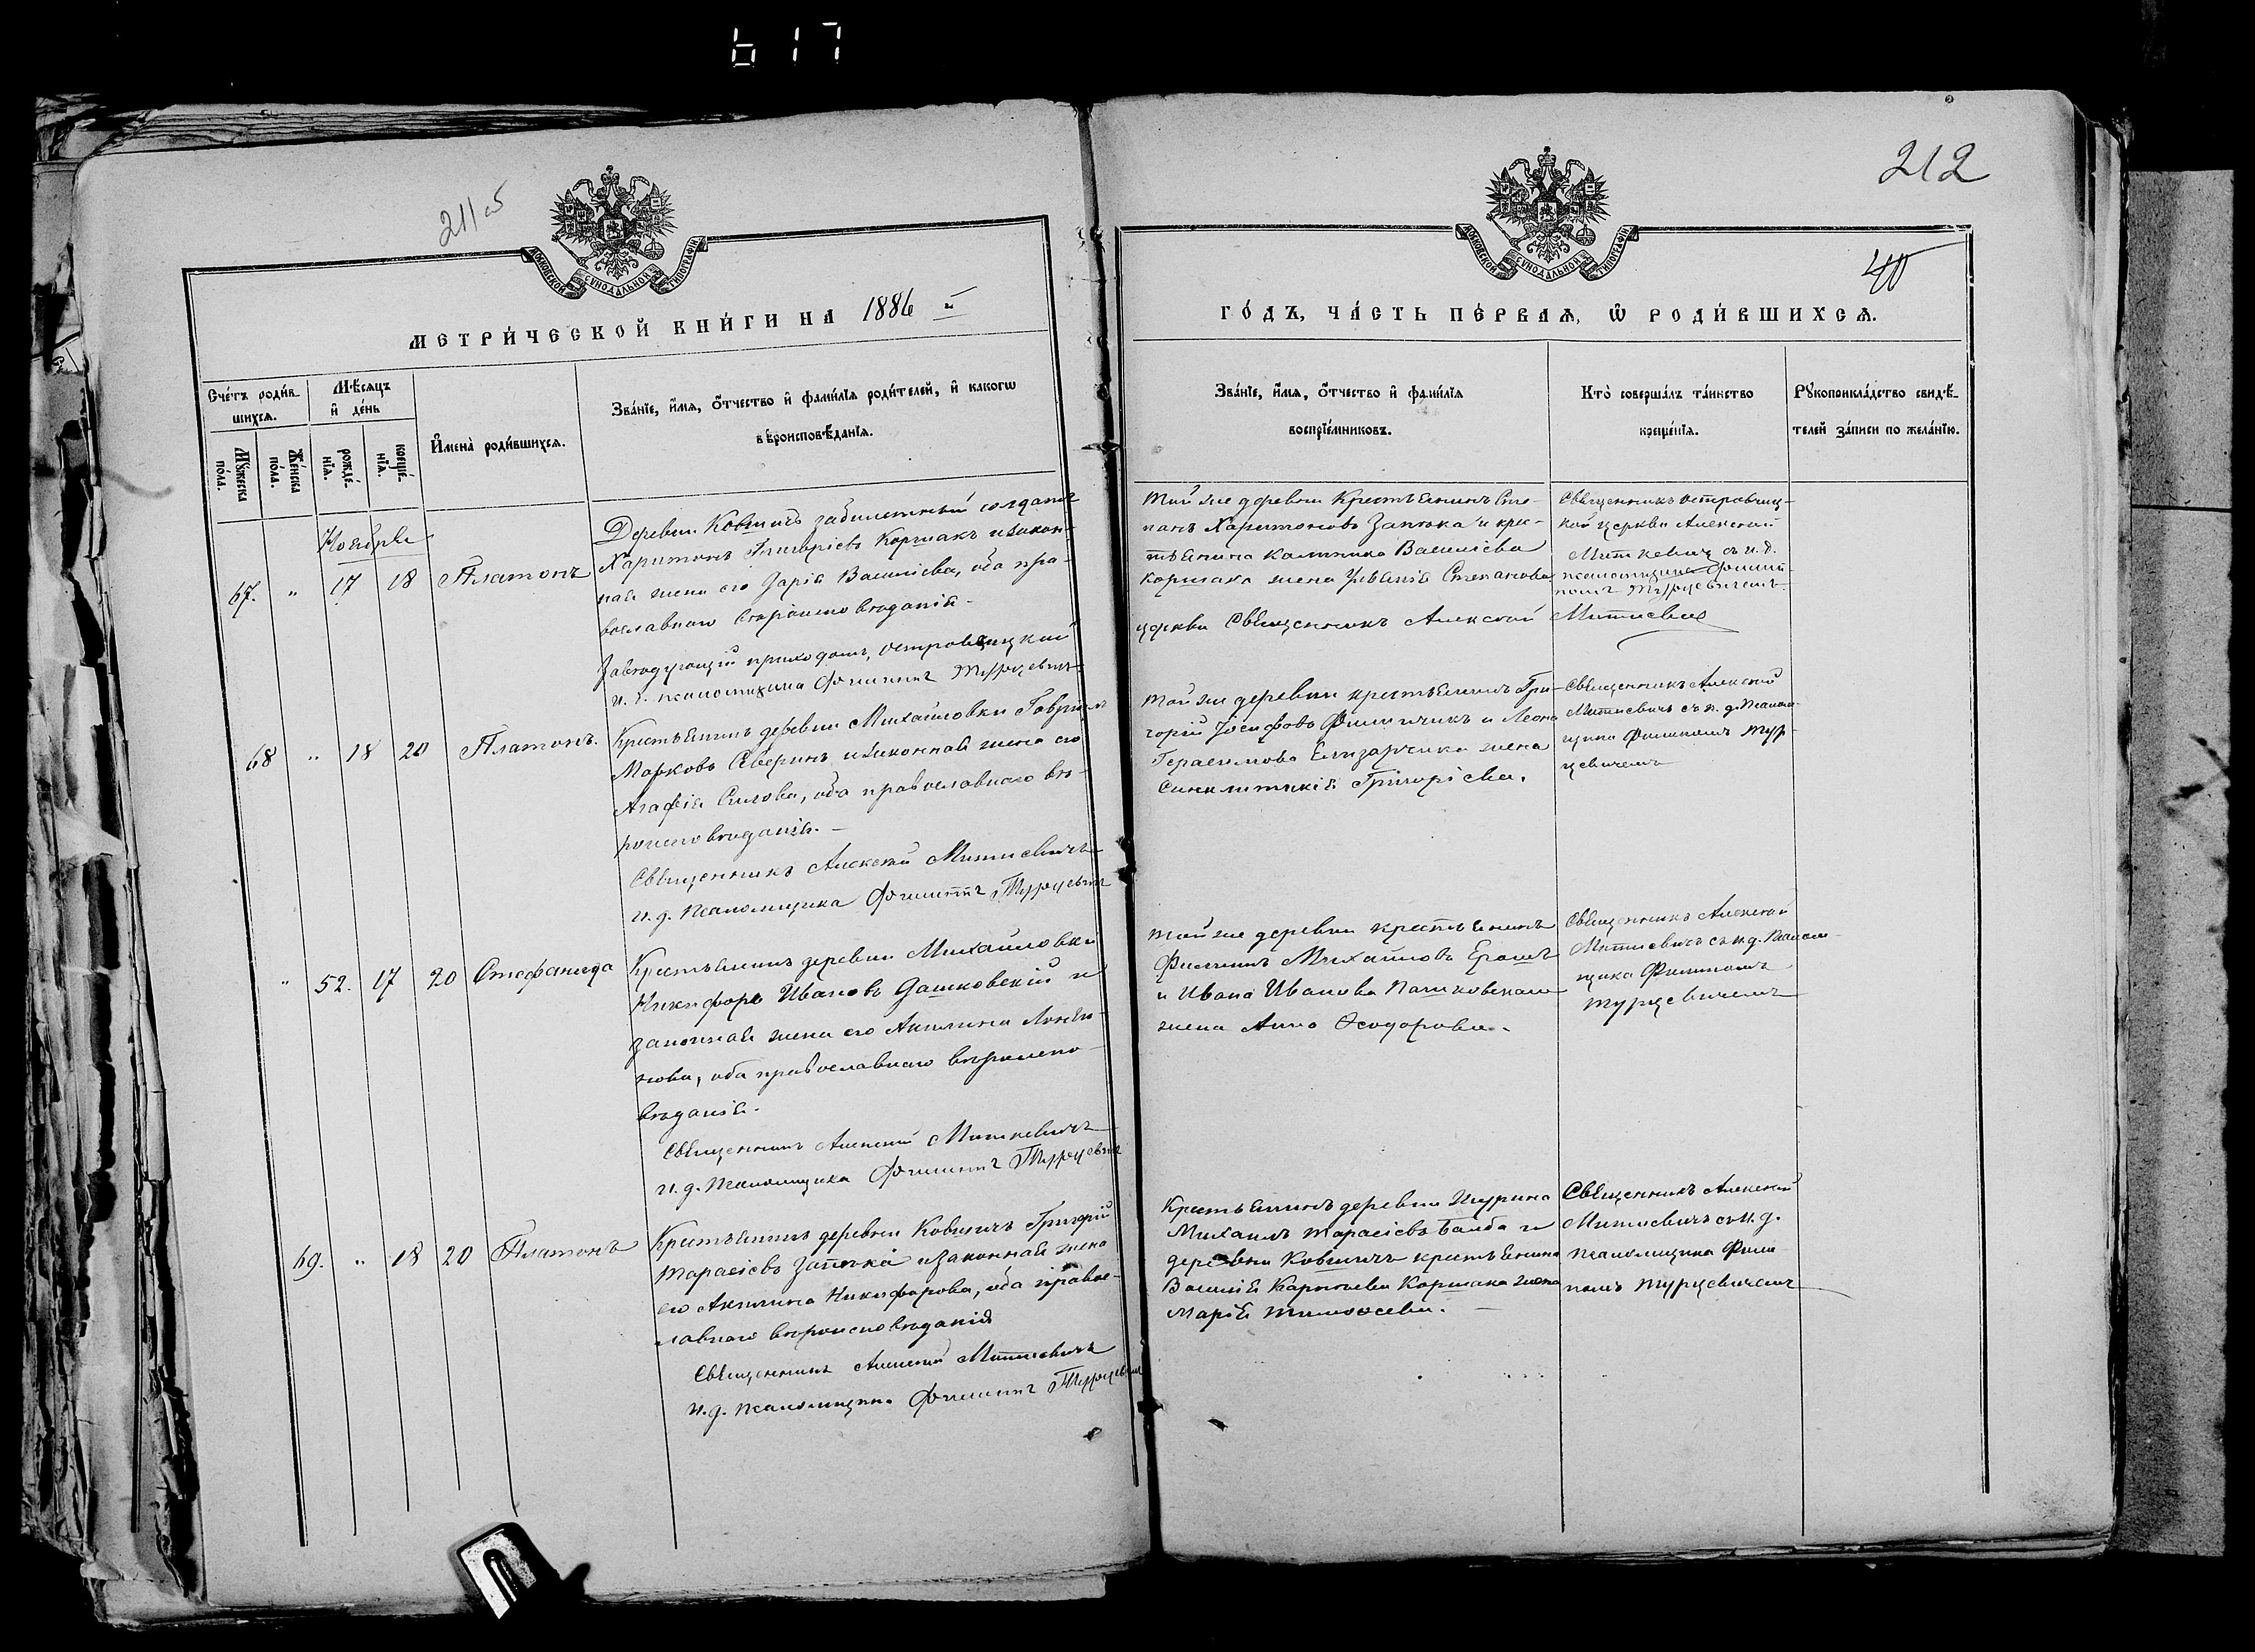 617
211 об
212
40
МОСКОВСКОЙ СѴНОДАЛЬНОЙ ТИПОГРАФІИ
МОСКОВСКОЙ СѴНОДАЛЬНОЙ ТИПОГРАФІИ
МЕТРИ́ЧЕСКОЙ КНИ́ГИ НА 1886 й
ГО́ДЪ, ЧА́СТЬ ПЕ́РВАѦ, Ѡ РОДИ́ВШИХСѦ.
Сче́тъ роди́в-
шихсѧ.
Мѣ́сѧцъ
и҆ де́нь
Мꙋ́жеска
по́ла.
Же́нска
по́ла.
рожде́-
нїѧ.
креще́-
нїѧ.
И҆мена̀ роди́вшихсѧ.
Зва́нїе, и҆́мѧ, о҆́тчество и҆ фами́лїѧ роди́телей, и҆ какогѡ
вѣроисповѣ́данїѧ.
Зва́нїе, и҆́мѧ, о҆́тчество и҆ фами́лїѧ
воспрїе́мниковъ.
Кто̀ соверша́лъ та́инство
креще́нїѧ.
Рꙋкоприкла́дство свидѣ́-
телей за́писи по жела́нїю.
Ноября
67. " 17 18 Платонъ
Деревни Ковшичъ забилетный солдатъ
Харитонъ Григоріевъ Коршакъ и закон-
ная жена его Дарія Василіева, оба пра-
вославнаго вѣроисповѣданія.
Завѣдующій приходомъ, островчицкой
и. д. псаломщика Филиппъ Турцевичъ
той же деревни крестьянинъ Сте-
панъ Харитоновъ Запѣка и кре-
стьянина Василіева
Коршака жена Степанова
церкви Священникъ Алексій Миткевичъ
Священникъ островчиц-
кой церкви Алексій
Миткевичъ съ и. д.
псаломщика Филип-
помъ Турцевичемъ
68 " 18 20 Платонъ.
Крестьянинъ деревни Михайловки Гавріилъ
Марковъ Аверинъ и законная жена его
Агафія Силова, оба православнаго вѣ-
роисповѣданія. —
Священникъ Алексій Миткевичъ
и. д. псаломщика Филиппъ Турцевичъ
той же деревни крестьянинъ Гри-
горій Іосифовъ Филипчикъ и Леона
Герасимова Елизарчика жена
Синклитикія Григоріева.
Священникъ Алексій
Миткевичъ съ и. д. псалом-
щика Филипомъ Тур-
цевичемъ
" 52. 17 20 Стефанида
Крестьянинъ деревни Михайловки
Никифоръ Ивановъ Дашковскій и
законная жена его Акилина
оба православнаго вѣроиспо-
вѣданія.
Священникъ Алексій Миткевичъ
и. д. псаломщика Филиппъ Турцевичъ
той же деревни крестьянинъ
Филипъ Михайловъ Ерошъ
и Ивана Иванова
жена Анна Ѳеодорова.
Священникъ Алексій
Миткевичъ съ и. д. псалом-
щика Филипомъ
Турцевичемъ
69. " 18 20 Платонъ
Крестьянинъ деревни Ковшичъ Григорій
Тарасіевъ Запѣка и законная жена
его Акилина Никифорова, оба правос-
лавнаго вѣроисповѣданія
Священникъ Алексій Миткевичъ
и. д. псаломщика Филиппъ Турцевичъ
Крестьянинъ деревни Щурина
Михаилъ Тарасіевъ Балба и
деревни Ковшичъ крестьянина
Василія Коршака жена
Марія Тимоѳеева. —
Священникъ Алексій
Миткевичъ съ и. д.
псаломщика Фили-
помъ Турцевичемъ